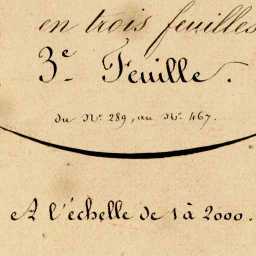 en trois feuilles
3e Feuille.
du No. 289, au No. 467.
A l'échelle de 1 à 2000.